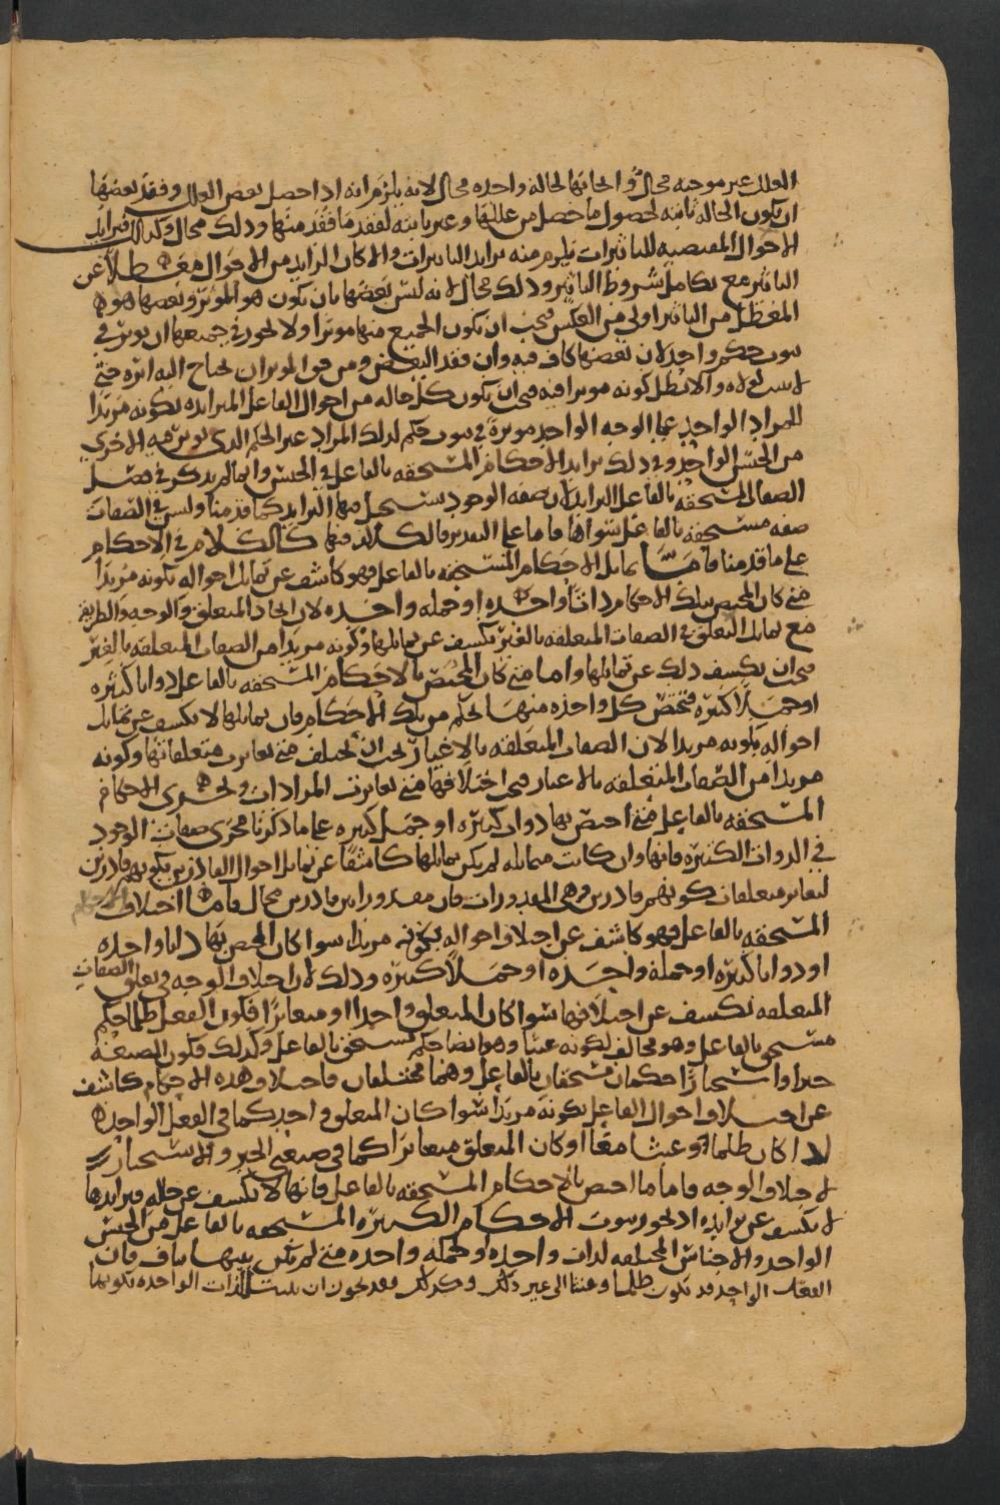 العلل غير موجبة محال وايجابها لحالة واحدة محال لانه يلزم انه اذا حصل بعض العلل وفقد بعضها
ان تكون الحالة ثابتة لحصول ما حصل من عللها وغير ثابتة لفقد ما فقد منها وذلك محال وكذلك فتزايد
الاحوال المقتضية للتاثيرات يلزم منه تزايد التاثيرات والا كان الزايد من الاحوال معطلا عن
التاثير مع تكامل شروط التاثير وذلك محال لانه ليس بعضها بان يكون هو المؤثر وبعضها هو
المعطل من التاثير اولى من العكس فيجب ان يكون الجميع منها موثرا ولا يجوز في جميعها ان يوثر في
ثبوت حكم واحد لان بعضها كاف فيه وان فقد البعض ومن حق الموثر ان يحتاج اليه اثره حتى
لا يستغنى والا بطل كونه موثرا فيه فيجب ان تكون كل حالة من احوال الفاعل المتزايدة بكونه مريدا
للمراد الواحد على الوجه الواحد موثرة في ثبوت حكم لذلك المراد غير الحكم الذي توثر فيه الاخرى
من الجنس الواحد وفي ذلك تزايد الاحكام المستحقة بالفاعل في الجنس وانما لم يذكر في فصل
الصفات المستحقة بالفاعل التزايد لان صفة الوجود يستحيل فيها التزايد كما قدمنا وليس في الصفات
صفة مستحقة بالفاعل سواها فاما على التقدير فالكلام فيها كالكلام في الاحكام
على ما قدمنا فاما تماثل الاحكام المستحقة بالفاعل فهو كاشف عن تماثل احواله بكونه مريدا
متى كان المختص بتلك الاحكام ذاتا واحدة او جملة واحدة لان اتحاد المتعلق والوجه والطريقة
مع تماثل التعلق في الصفات المتعلقة بالغير يكشف عن تماثلها وكونه مريدا من الصفات المتعلقة بالغير
فيجب ان يكشف ذلك عن تماثلها واما متى كان المختص بالاحكام المستحقة بالفاعل ذواتا كثيرة
او جملا كثيرة فيختص كل واحدة منها بحكم من تلك الاحكام فان تماثلها لا يكشف عن تماثل
احواله بكونه مريدا لان الصفات المتعلقة بالاغيار يجب ان تختلف متى تغايرت متعلقاتها وكونه
مريدا من الصفات المتعلقة بالاغيار فيجب اختلافها متى تغايرت المرادات وتجري الاحكام
المستحقة بالفاعل متى اختص بها ذوات كثيرة او جمل كثيرة على ما ذكرنا مجرى صفات الوجود
في الذوات الكثيرة فانها وان كانت متماثلة لم يكن تماثلها كاشفا عن تماثل احوال القادرين بكونهم قادرين
لتغاير متعلقات كونهم قادرين وهي المقدورات فان مقدورا بين قادرين محال فاما اختلاف الاحكام
المستحقة بالفاعل فهو كاشف عن اختلاف احواله بكونه مريدا سوا كان المختص بها ذاتا واحدة
او ذواتا كثيرة او جملة واحدة او جملا كثيرة وذلك لان اختلاف الوجه في تعلق الصفات
المتعلقة يكشف عن اختلافها سوا كان المتعلق واحدا او متغايرا فكون الفعل ظلما حكم
مستحق بالفاعل وهو مخالف لكونه عبثا وهو ايضا حكم مستحق بالفاعل وكذلك فكون الصيغة
خبرا واستخبارا حكمان مستحقان بالفاعل وهما مختلفان فاختلاف هذه الاحكام كاشف
عن اختلاف احوال الفاعل بكونه مريدا سوا كان المتعلق واحد كما في الفعل الواحد
اذا كان ظلما وعبثا معا او كان المتعلق متغايرا كما في صيغتي الخبر والاستخبار
لاختلاف الوجه فاما ما اختص بالاحكام المستحقة بالفاعل فانها لا تكشف عن حاله فتزايدها
لا يكشف عن تزايده اذ يجوز ثبوت الاحكام الكثيرة المستحقة بالفاعل من الجنس
الواحد والاجناس المختلفة لذات واحدة او لجملة واحدة متى لم يكن بينها تناف فان
الفعل الواحد قد يكون ظلما وعبثا الى غير ذلك وكذلك فقد يجوز ان يثبت للذات الواحدة بكونها